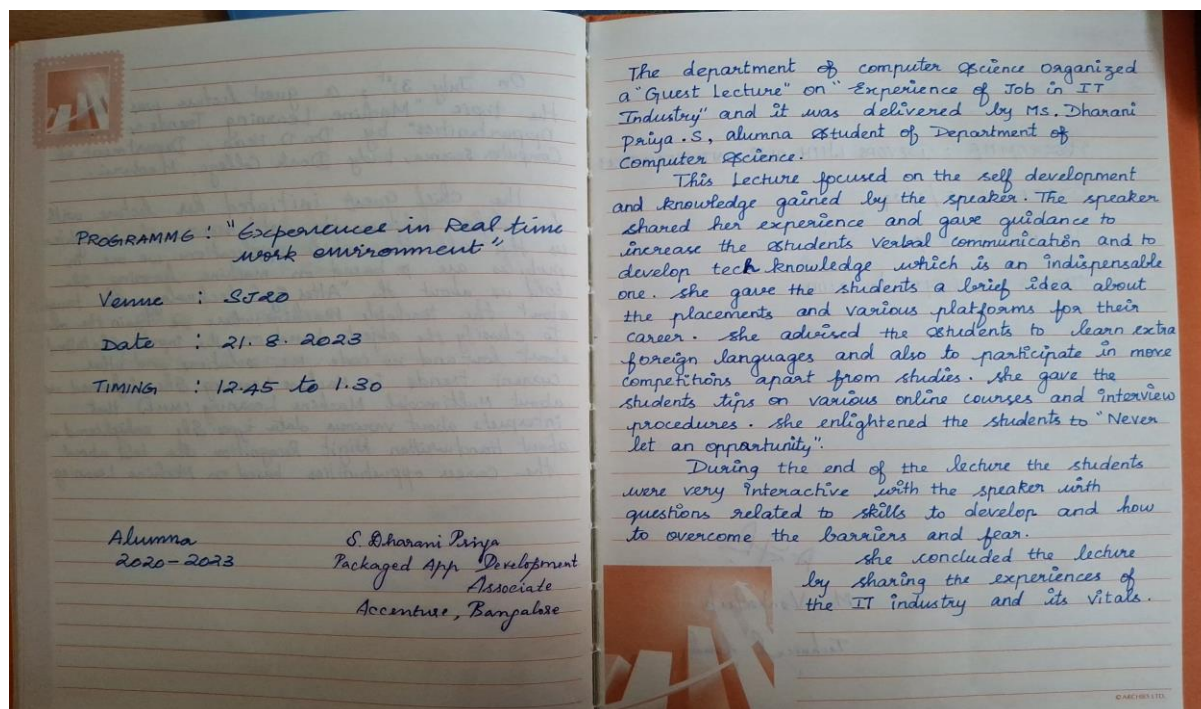 PROGRAMME : "Experiences in Real time
work environment"
Venue : SJ20
Date : 21.8.2023
TIMING : 12.45 to 1.30
Alumna
2020-2023
S. Dharani Priya
Packaged App Development
Associate
Accenture, Bangalore
The department of computer science organized
a "Guest Lecture" on "Experience of Job in IT
Industry" and it was delivered by Ms. Dharani
Priya.S, alumna student of Department of
Computer Science.
This Lecture focused on the self development
and knowledge gained by the speaker. The speaker
shared her experience and gave guidance to
increase the students Verbal communication and to
develop tech knowledge which is an indispensable
one. she gave the students a brief idea about
the placements and various platforms for their
career. she advised the students to learn extra
foreign languages and also to participate in more
competitions apart from studies. she gave the
students tips on various online courses and interview
procedures. she enlightened the students to "Never
let an opportunity".
During the end of the lecture the students
were very interactive with the speaker with
questions related to skills to develop and how
to overcome the barriers and fear.
she concluded the lecture
by sharing the experiences of
the IT industry and its vitals.
© ARCHIES LTD.